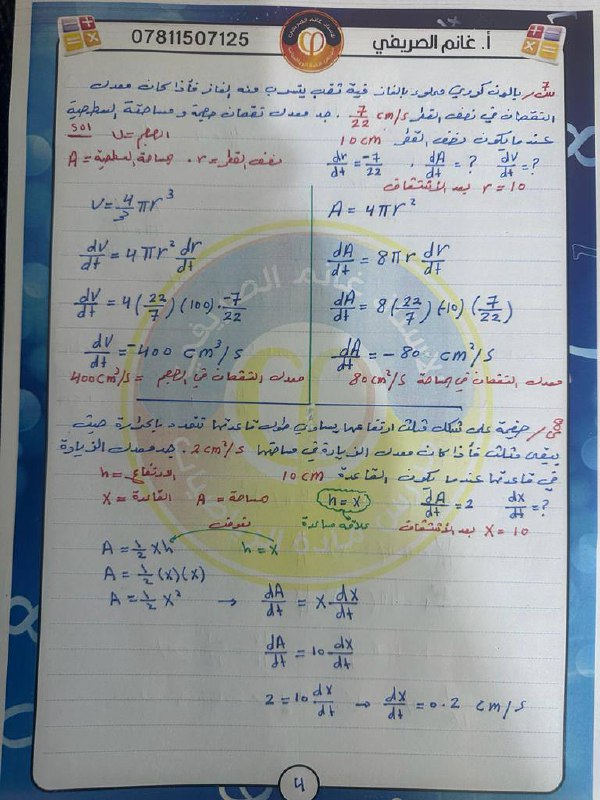 أ. غانم الصريفي
07811507125
س7/ بالون كروي مملوء بالغاز فيه ثقب يتسرب منه الغاز فأذا كان معدل
النقصان في نصف القطر 7/22 cm/s. جد معدل نقصان حجمه ومساحته السطحية
عندما يكون نصف القطر 10 cm
sol
الحجم = V
نصف القطر = r ، مساحة السطحية = A
dr/dt = -7/22 , dA/dt = ? dV/dt = ?
r = 10 بعد الأشتقاق
V = 4/3 πr³
dV/dt = 4πr² dr/dt
dV/dt = 4(22/7)(100)·-7/22
dV/dt = -400 cm³/s
معدل النقصان في الحجم = 400 cm³/s
A = 4πr²
dA/dt = 8πr dr/dt
dA/dt = 8(22/7)(-10)(7/22)
dA/dt = -80 cm²/s
معدل النقصان في المساحة 80 cm²/s
صفيحة على شكل مثلث ارتفاعها يساوي طول قاعدتها تتمدد بالحرارة حيث
يبقى مثلث فأذا كان معدل الزيادة في مساحتها 2 cm²/s. جد معدل الزيادة
في قاعدتها عندما تكون القاعدة 10 cm
الارتفاع = h
القاعدة = X مساحة = A
h = x
dA/dt = 2 dx/dt = ?
علاقة مساعدة
X = 10 بعد الأشتقاق
نعوض
A = 1/2 xh
h = x
A = 1/2 (x)(x)
A = 1/2 x² → dA/dt = x dx/dt
dA/dt = 10 dx/dt
2 = 10 dx/dt → dx/dt = 0.2 cm/s
4